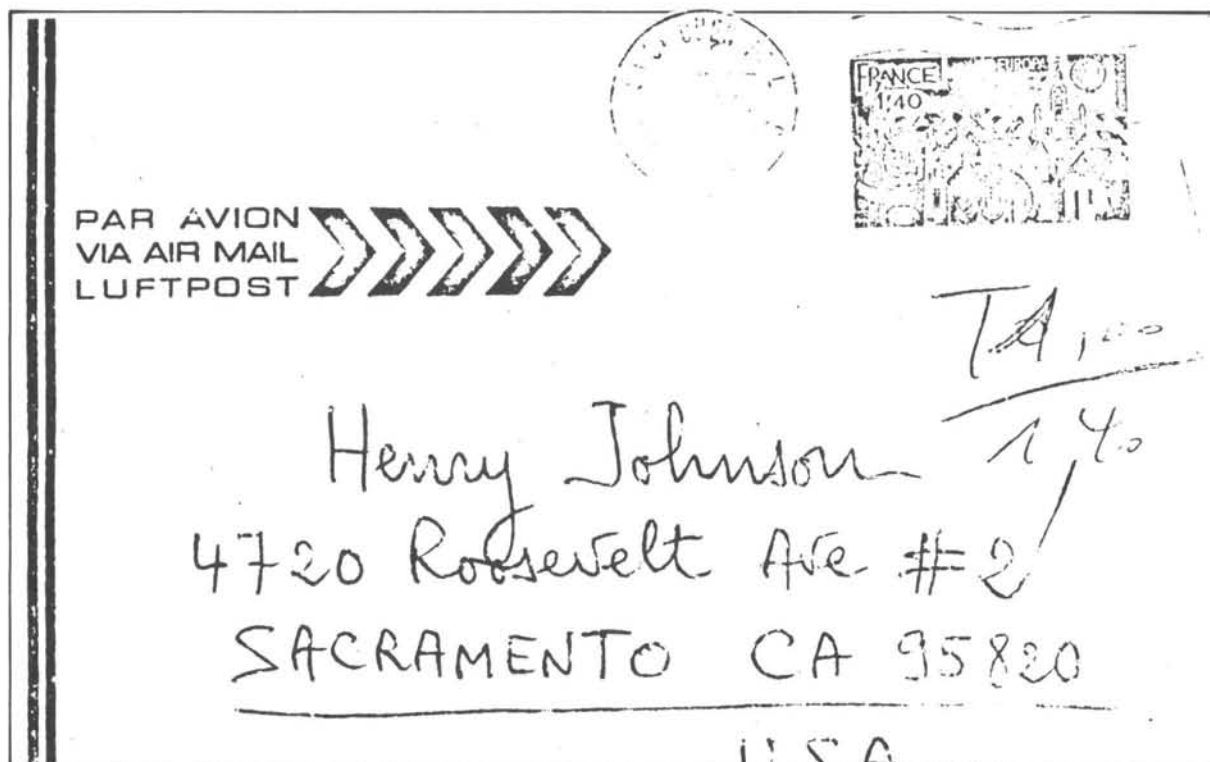 FRANCE EUROPA
1,40
PAR AVION
VIA AIR MAIL
LUFTPOST
1,40
Henry Johnson
4720 Roosevelt Ave #2
SACRAMENTO CA 95820
USA